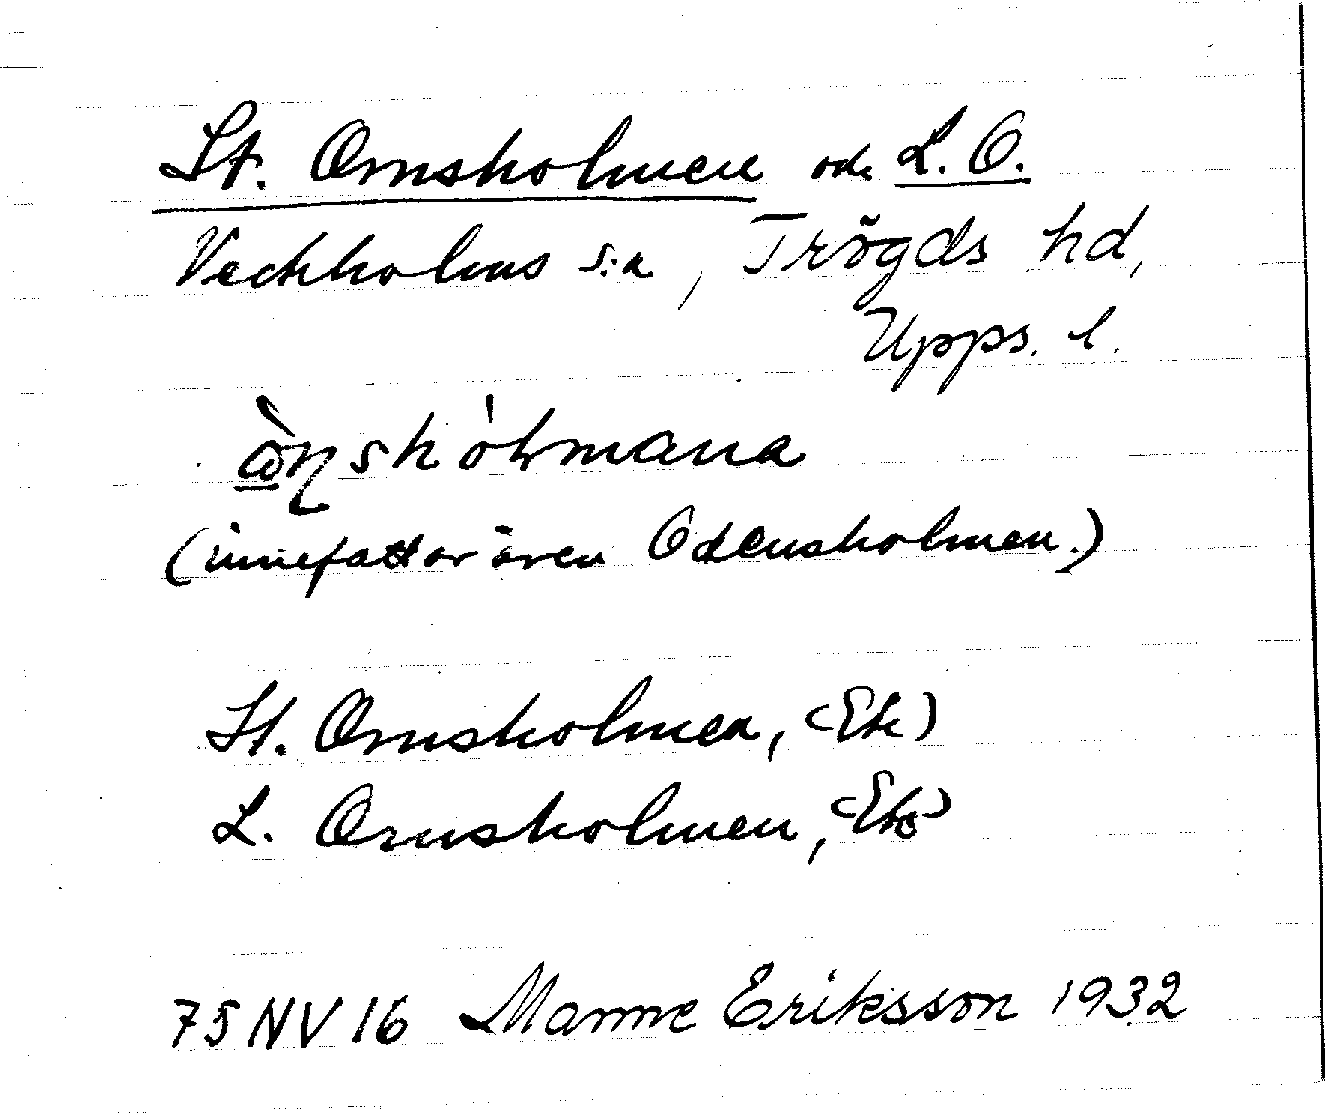 St. Ornsholmen och L. O.
Veckholms s:n, Trögds hd,
Upps. l.
(innefattar även Odensholmen.)
St. Ornsholmen, (Ek)
L. Ornsholmen, (Ek)
75 NV 16 Manne Eriksson 1932